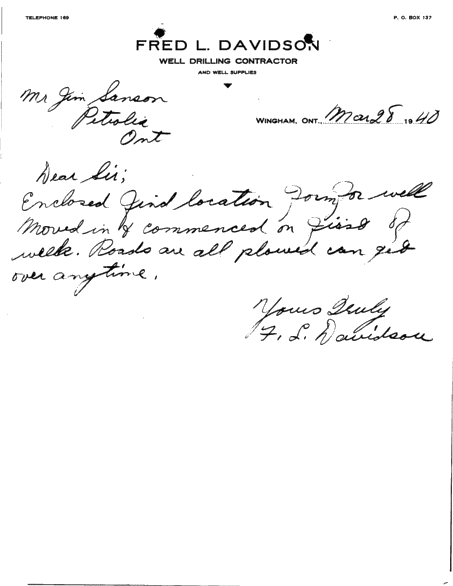 TELEPHONE 169
P. O. BOX 137
FRED L. DAVIDSON
WELL DRILLING CONTRACTOR
AND WELL SUPPLIES
Mr Jim Sanson
Petrolia
Ont
WINGHAM, ONT., Mar 28 1940
Dear Sir;
Enclosed find location form for well
moved in & commenced on first of
week. Roads are all plowed can get
over anytime.
Yours Truly
F. L. Davidson